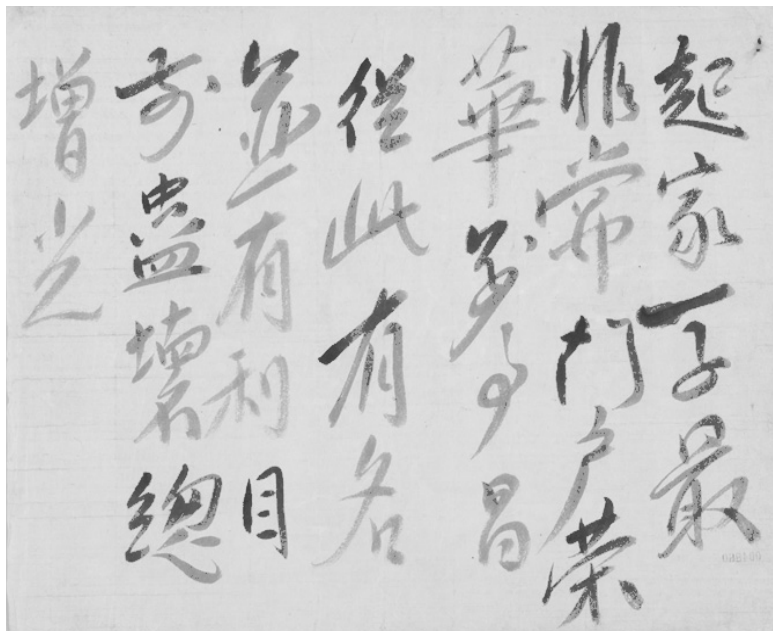 起家一子最
非常门户荣
華萬事昌
從此有名
並有利目
前蛊壞總
增光